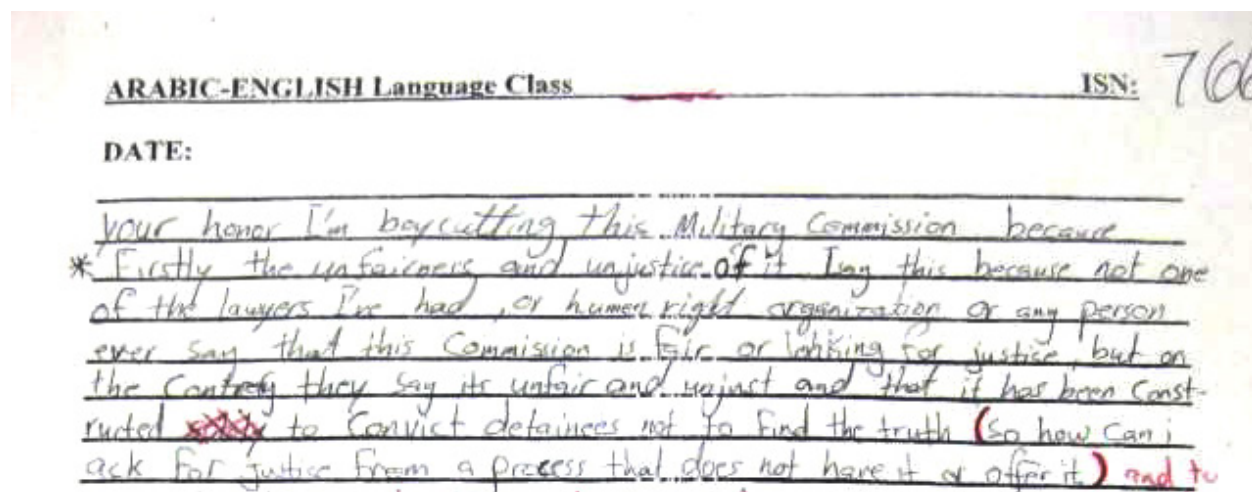 ARABIC-ENGLISH Language Class ISN: 766
DATE:
your honor I'm boycutting this Military Commission because
* Firstly the unfairness and unjustice of it I say this because not one
of the lawyers I've had, or human right organization or any person
ever say that this Commission is fair or looking for justice but on
the Contrey they say its unfair and unjust and that it has been Const-
ructed to Convict detainees not to find the truth (so how can i
ack for justice from a process that does not have it or offer it) and to